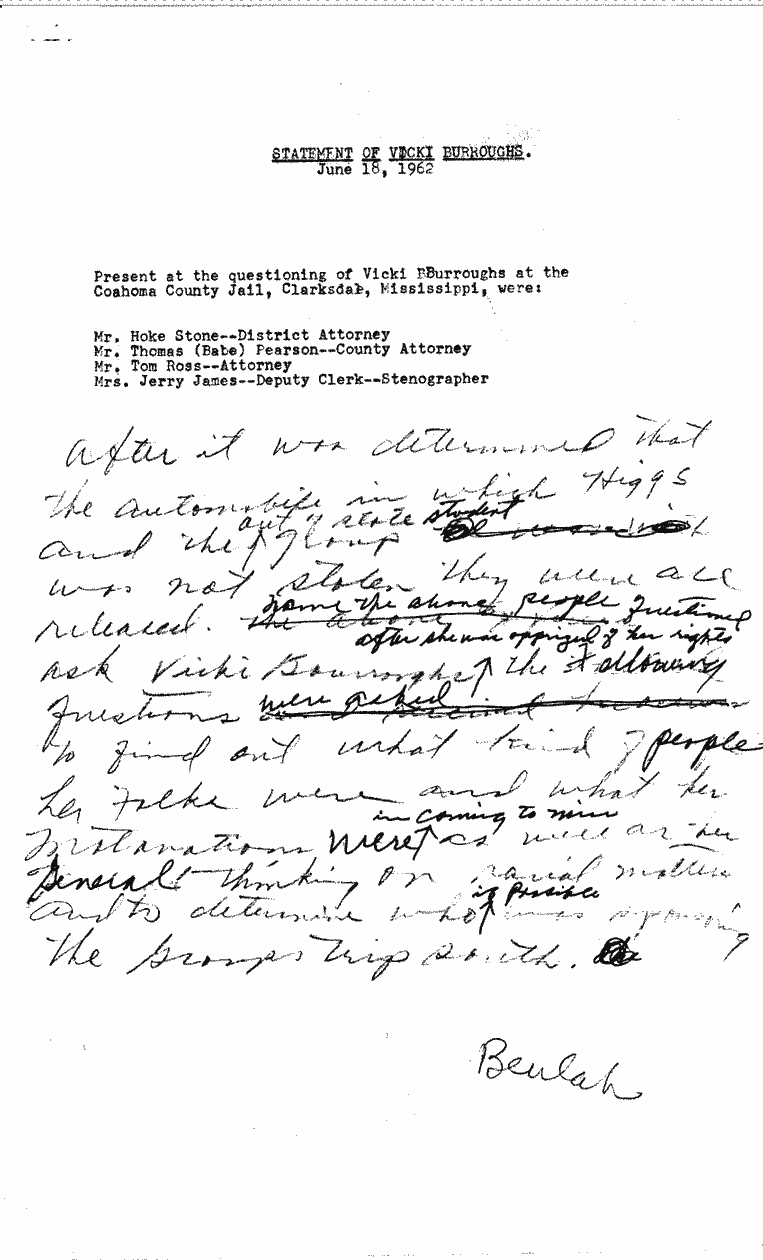 STATEMENT OF VICKI BURROUGHS.
June 18, 1962
Present at the questioning of Vicki BBurroughs at the
Coahoma County Jail, Clarksdale, Mississippi, were:
Mr. Hoke Stone--District Attorney
Mr. Thomas (Babe) Pearson--County Attorney
Mr. Tom Ross--Attorney
Mrs. Jerry James--Deputy Clerk--Stenographer
After it was determined that
the automobile in which Higgs
out of state student
and the group
was not stolen they were all
released. the above people questioned
after she was apprized of her rights
ask Vicki Bourroughs the following
questions were asked
to find out what kind of people
her folks were and what her
in coming to miss
were as well as her
General thinking on racial matters
if possible
and to determine who was sponsoring
the groups trip south.
Beulah